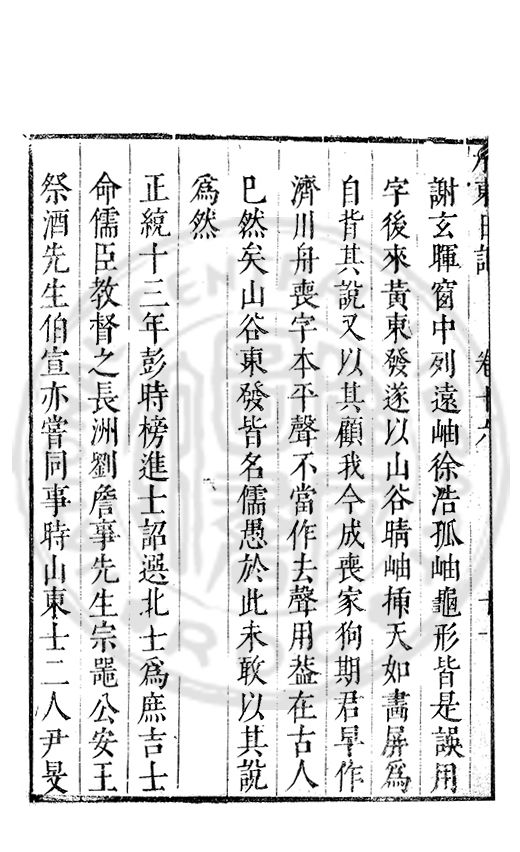 水東日記 卷十六 十一
謝玄暉窗中列遠岫徐浩孤岫龜形皆是誤用
字後來黃東發遂以山谷晴岫插天如畵屏爲
自背其說又以其顧我今成喪家狗期君早作
濟川舟喪字本平聲不當作去聲用葢在古人
已然矣山谷東發皆名儒愚於此未敢以其說
爲然
正統十三年彭時榜進士詔選北士爲庶吉士
命儒臣教督之長洲劉詹事先生宗噐公安王
祭酒先生伯宣亦嘗同事時山東士二人尹旻